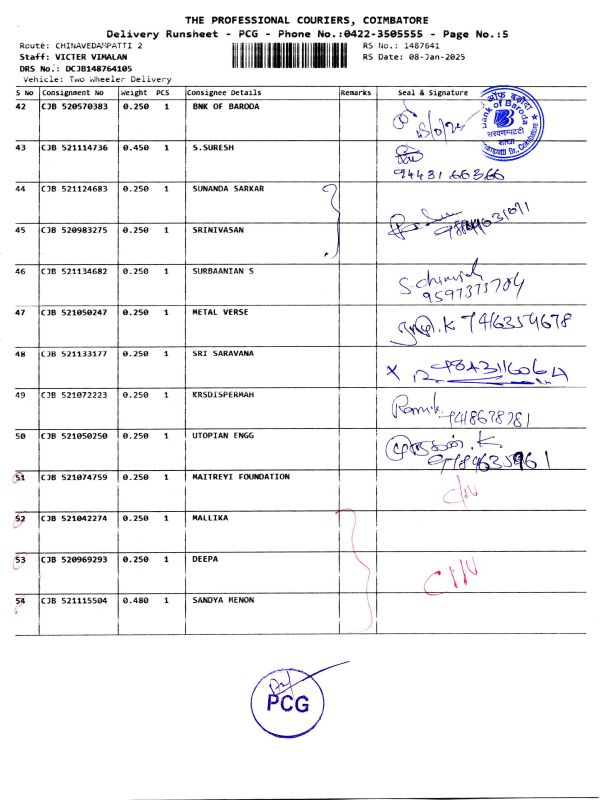 THE PROFESSIONAL COURIERS, COIMBATORE
Delivery Runsheet - PCG - Phone No.:0422-3505555 - Page No.:5
Route: CHINAVEDAMPATTI 2
RS No.: 1487641
Staff: VICTER VIMALAN
RS Date: 08-Jan-2025
DRS No.: DCJB148764105
Vehicle: Two Wheeler Delivery
S No Consignment No Weight PCS Consignee Details Remarks Seal & Signature
42 CJB 520570383 0.250 1 BNK OF BARODA
बैंक ऑफ़ बड़ौदा
Bank of Baroda
शाखा
43 CJB 521114736 0.450 1 S.SURESH
94431 66366
44 CJB 521124683 0.250 1 SUNANDA SARKAR
45 CJB 520983275 0.250 1 SRINIVASAN
46 CJB 521134682 0.250 1 SURBAANIAN S
9597373704
47 CJB 521050247 0.250 1 METAL VERSE
K 7416354678
48 CJB 521133177 0.250 1 SRI SARAVANA
X
49 CJB 521072223 0.250 1 KRSDISPERMAH
50 CJB 521050250 0.250 1 UTOPIAN ENGG
முருகன். K
51 CJB 521074759 0.250 1 MAITREYI FOUNDATION
52 CJB 521042274 0.250 1 MALLIKA
53 CJB 520969293 0.250 1 DEEPA
54 CJB 521115504 0.480 1 SANDYA MENON
PCG